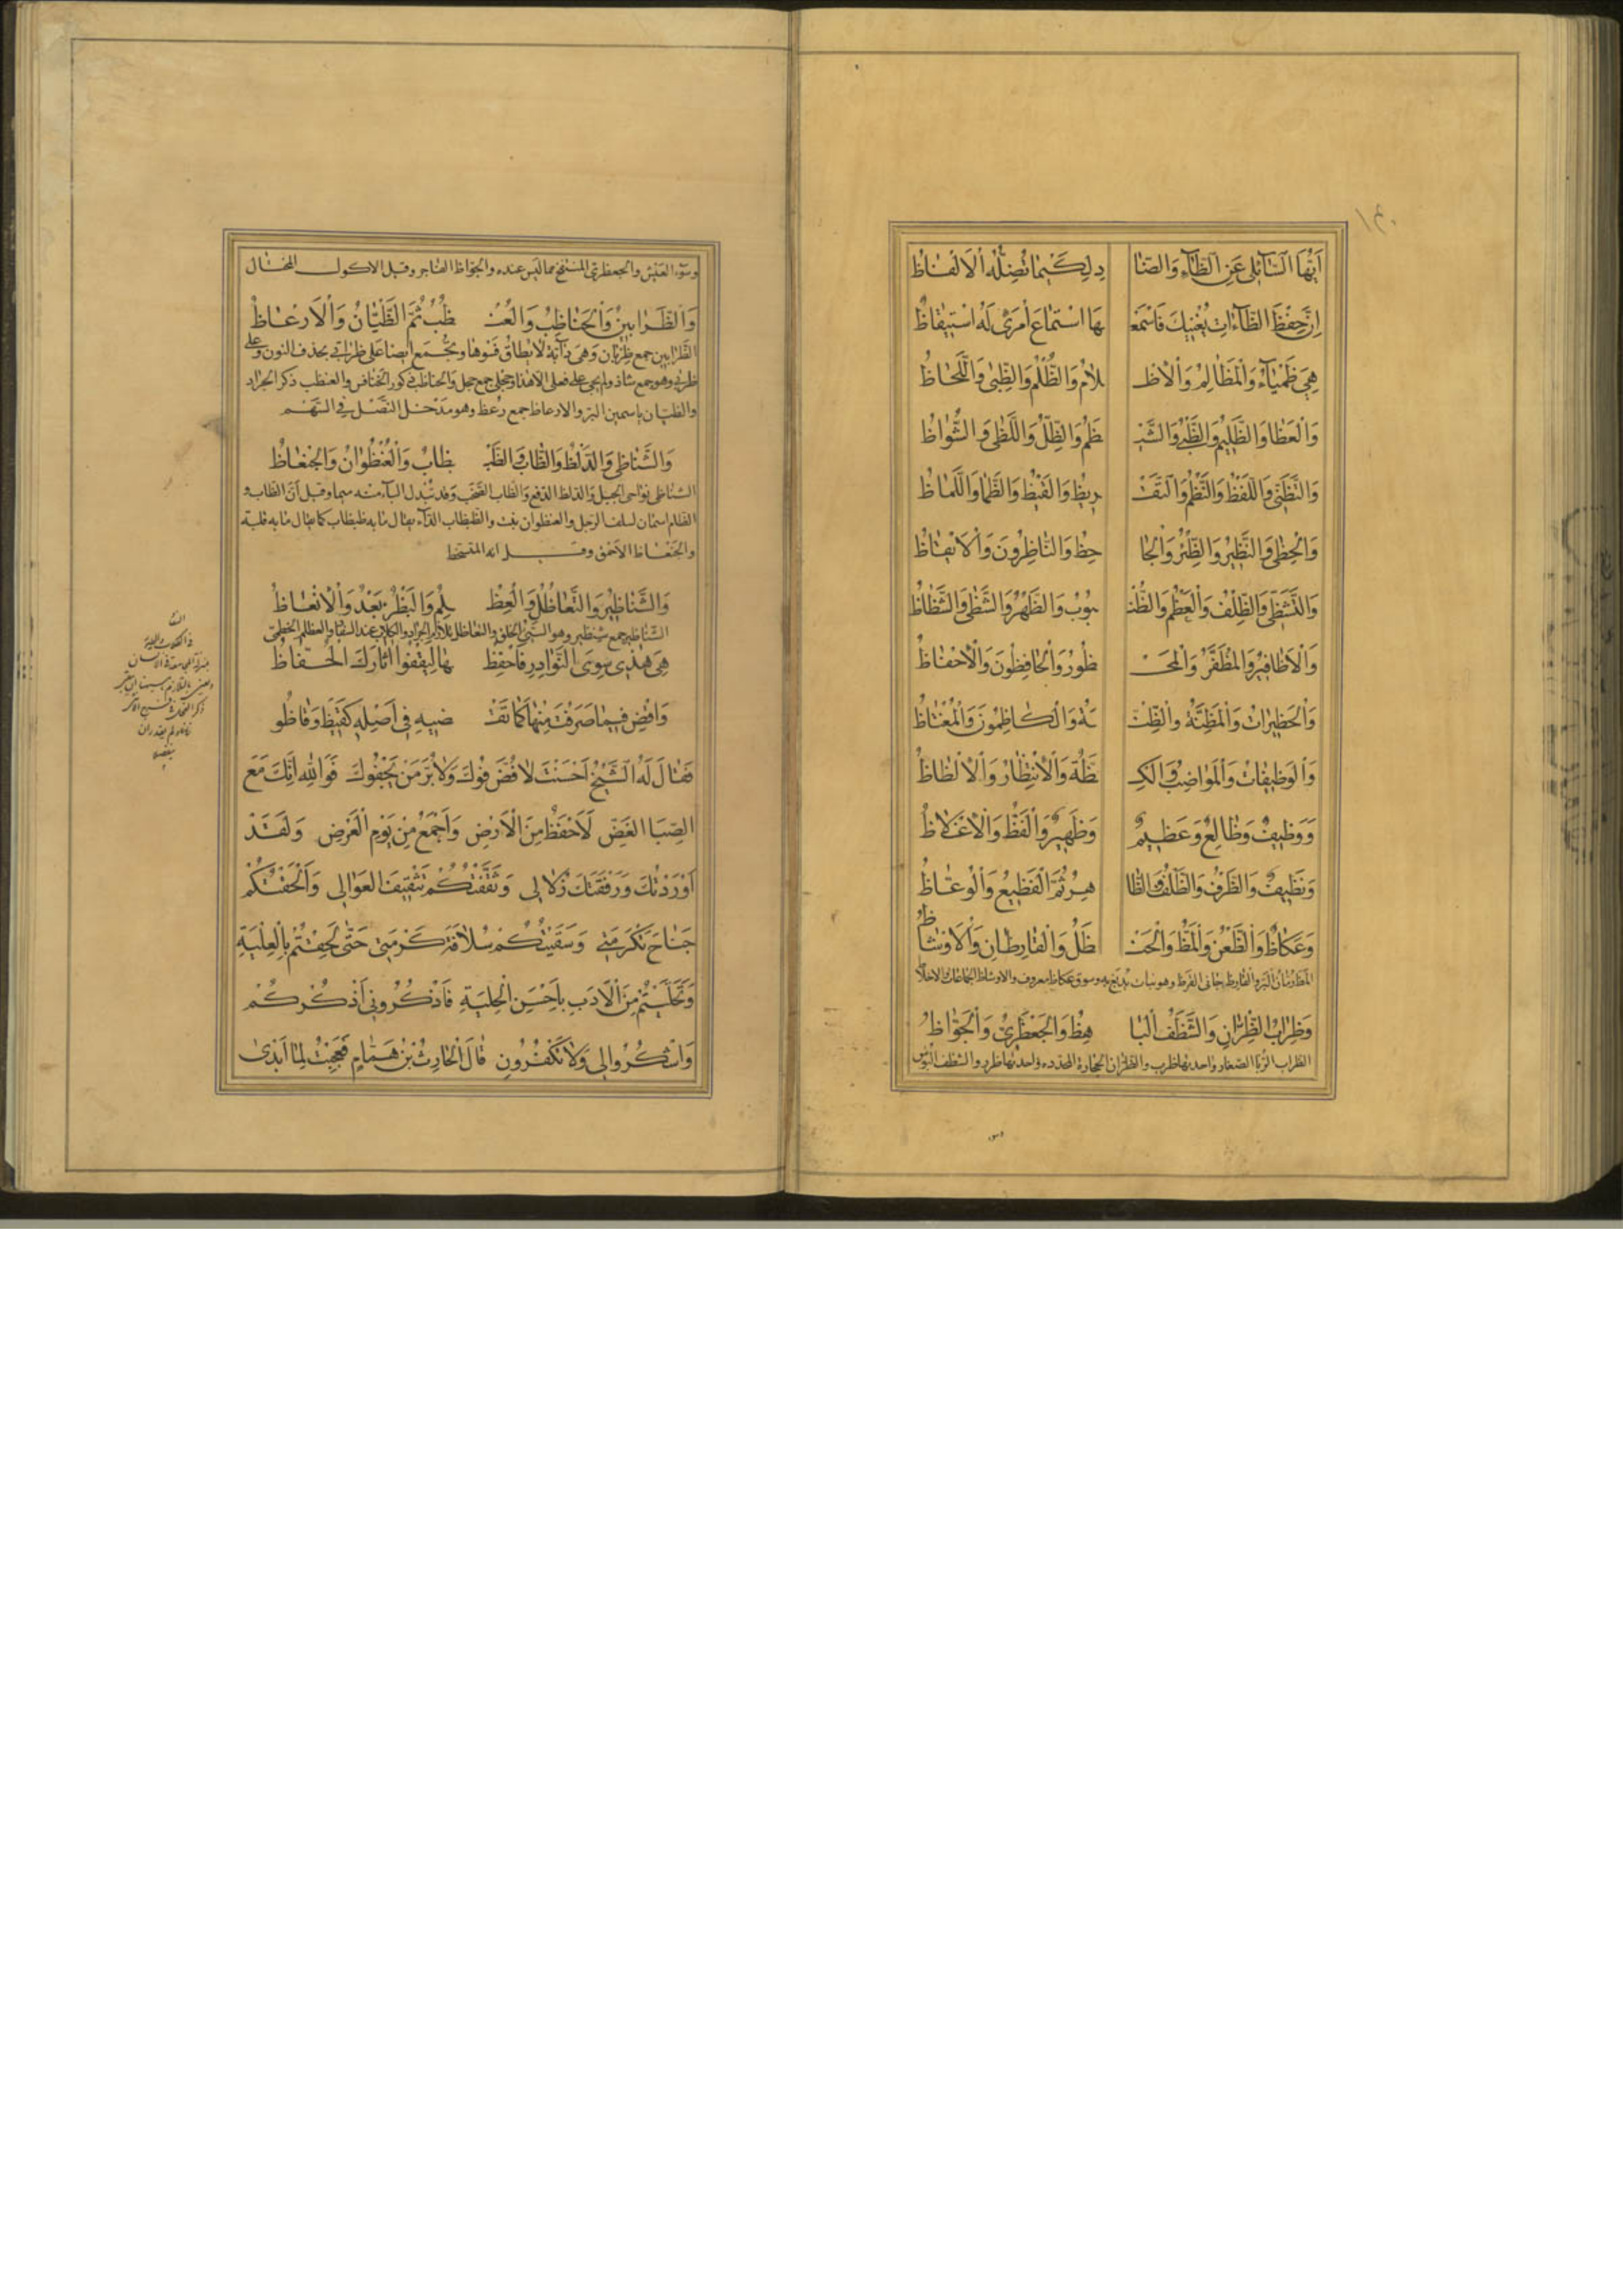 أَيُّهَا السَّائِلِي عَنِ الظَّاءِ وَالضَّا دِ لِكَيْمَا تُضِلُّهُ الْأَلْفَاظُ
إِنَّ حِفْظَ الظَّاءَاتِ يُغْنِيكَ فَاسْمَعْ هَا اسْتِمَاعَ امْرِئٍ لَهُ اسْتِيقَاظُ
هِيَ ظَمْيَاءُ وَالْمَظَالِمُ وَالْأَظْ لَامُ وَالظُّلْمُ وَالظُّبَى وَاللَّحَاظُ
وَالْعَظَا وَالظَّلِيمُ وَالظَّبْيُ وَالشَّيْ ظَمُ وَالظِّلُّ وَاللَّظَى وَالشُّوَاظُ
وَالتَّظَنِّي وَاللَّفْظُ وَالنَّظْمُ وَالتَّقْ رِيظُ وَالْقَيْظُ وَالظَّمَا وَاللَّمَاظُ
وَالْحِظَى وَالنَّظِيرُ وَالظِّئْرُ وَالْجَا حِظُ وَالنَّاظِرُونَ وَالْأَيْقَاظُ
وَالتَّشَظِّي وَالظِّلْفُ وَالْعَظْمُ وَالظُّنْ بُوبُ وَالظَّهْرُ وَالشَّظَى وَالشِّظَاظُ
وَالْأَظَافِيرُ وَالْمُظَفَّرُ وَالْمَحْ ظُورُ وَالْحَافِظُونَ وَالْإِحْفَاظُ
وَالْحَظِيرَاتُ وَالْمَظِنَّةُ وَالظِّنْ نَةُ وَالْكَاظِمُونَ وَالْمُغْتَاظُ
وَالْوَظِيفَاتُ وَالْمُوَاظِبُ وَالْكِ ظَّةُ وَالْانْتِظَارُ وَالْإِلْظَاظُ
وَوَظِيفٌ وَظَالِعٌ وَعَظِيمٌ وَظَهِيرٌ وَالْفَظُّ وَالْإِغْلَاظُ
وَنَظِيفٌ وَالظَّرْفُ وَالظَّلَفُ وَالظَّا هِرُ ثُمَّ الْفَظِيعُ وَالْوُعَّاظُ
وَعُكَاظٌ وَالظَّعْنُ وَالْمَظُّ وَالْحَنْ ظَلُ وَالْقَارِظَانِ وَالْأَوْشَاظُ
المظ رمّان البرّ والقارظ جانى القرظ وهو نبات يدبغ به وسوق عكاظ معروف والاوشاظ الجماعات الاخلاط
وَظِرَابُ الظِّرَّانِ وَالشَّظَفُ الْبَا هِظُ وَالْجَعْظَرِيُّ وَالْجَوَّاظُ
الظراب الرّبا الصغار واحدتها ظرب والظرّان الحجارة المحددة واحدتها ظرر والشظف البؤس
وسوّء العيش والجعظرى المنتفخ بما ليس عنده والجوّاظ الفاجر وقيل الاكول المختال
وَالظَّرَابِينُ وَالْحَنَاظِبُ وَالْعُنْ ظُبُ ثُمَّ الظَّيَّانُ وَالْأَرْعَاظُ
الظرابين جمع ظربان وهى دابّة لا يطاق فسوها ويجمع ايضا على ظرابى بحذف النون وعلى
ظربى وهو جمع شاذ ولم يجئ على فعلى الا هذا وحجلى جمع حجل والحناظب ذكور الخنافس والعنظب ذكر الجراد
والظيّان ياسمين البرّ والارعاظ جمع رعظ وهو مدخل النصل في السهم
وَالشَّنَاظِي وَالدَّلْظُ وَالظَّابُ وَالظَّبْ ظَابُ وَالْعُنْظُوَانُ وَالْجِنْعَاظُ
الشناظى نواحى الجبل والدلظ الدفع والظاب الصخب وقد تبدل الباء منه ميما وقيل ان الظاب و
الظام اسمان لسلف الرجل والعنظوان نبت والظبظاب الداء يقال ما به ظبظاب كما يقال ما به قلبة
والجنعاظ الاحمق وقيل انه المتسخط
وَالشَّنَاظِيرُ وَالتَّعَاظُلُ وَالْعِظْ لِمُ وَالْبَظْرُ بَعْدُ وَالْإِنْعَاظُ
الشناظير جمع شنظير وهو السيّئ الخلق والتعاظل تلازم الجراد والكلاب عند السفاد والعظلم الخطمى
هِيَ هٰذِي سِوَى النَّوَادِرِ فَاحْفَظْ هَا لِيَقْفُو آثَارَكَ الْحُفَّاظُ
وَاقْضِ فِيمَا صَرَّفْتَ مِنْهَا كَمَا تَقْ ضِيهِ فِي أَصْلِهِ كَقَيْظٍ وَقَاظُوا
فَقَالَ لَهُ الشَّيْخُ أَحْسَنْتَ لَا فُضَّ فُوكَ وَلَا بُرَّ مَنْ يَجْفُوكَ فَوَاللهِ إِنَّكَ مَعَ
الصِّبَا الْغَضِّ لَأَحْفَظُ مِنَ الْأَرْضِ وَأَجْمَعُ مِنْ يَوْمِ الْعَرْضِ وَلَقَدْ
أَوْرَدْتُكَ وَرُفْقَتَكَ زُلَالِي وَثَقَّفْتُكُمْ تَثْقِيفَ الْعَوَالِي وَأَلْحَفْتُكُمْ
جَنَاحَ تَكْرِمَتِي وَسَقَيْتُكُمْ سُلَافَةَ كَرْمَتِي حَتَّى لَحِقْتُمْ بِالْعِلْيَةِ
وَتَحَلَّيْتُمْ مِنَ الْأَدَبِ بِأَحْسَنِ الْحِلْيَةِ فَاذْكُرُونِي أَذْكُرْكُمْ
وَاشْكُرُوا لِي وَلَا تَكْفُرُونِ قَالَ الْحَارِثُ بْنُ هَمَّامٍ فَعَجِبْتُ لِمَا أَبْدَى